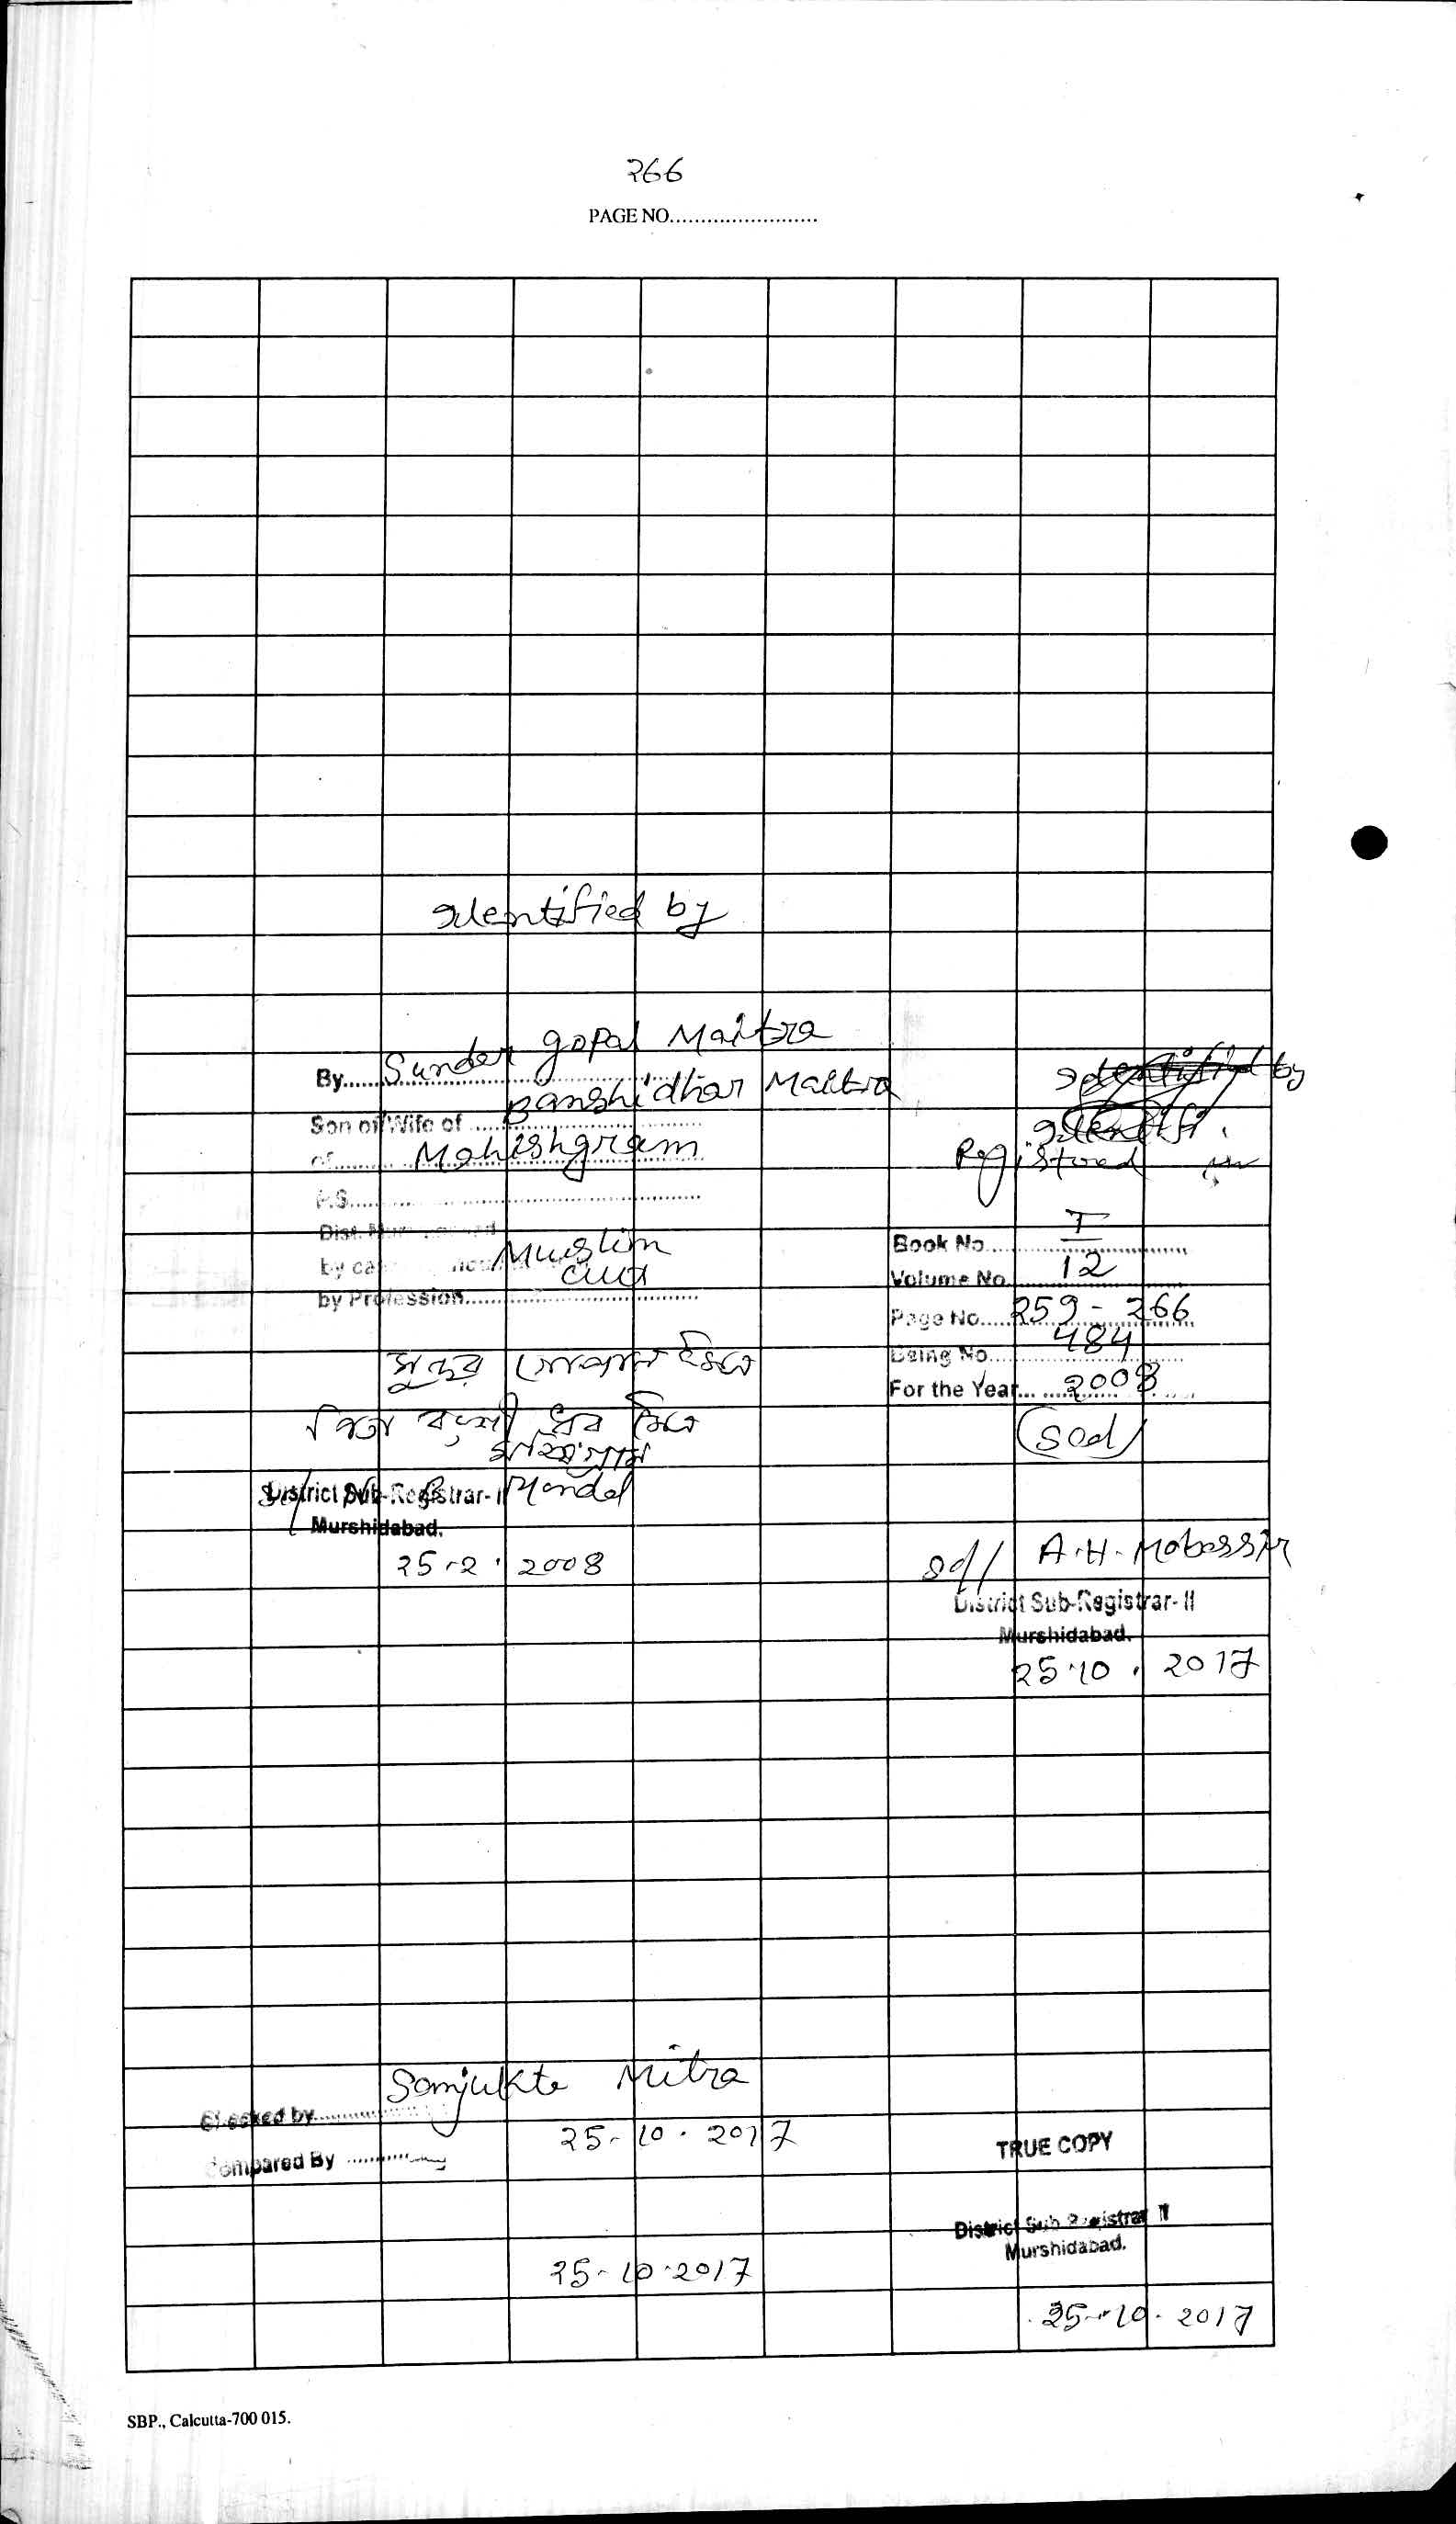 266
PAGE NO........................
Identified by
By...... Sunder gopal Maitra
Son of Wife of ...... Banshidhar Maitra
of...... Mohishgram
P.S......
Dist.
by ca Muslim
by Profession...... Cult
সুন্দর গোপাল মৈত্র
পিতা বংশী ধর মৈত্র
মহিষগ্রাম
Sd/ Mondal
District Sub-Registrar- II
Murshidabad.
25.2.2008
Identified by
Identifi
Registered in
Book No...... I
Volume No...... 12
Page No...... 259 - 266
Being No...... 484
For the Year...... 2008
(Scd)
Sd/ A.H. Mobassir
District Sub-Registrar- II
Murshidabad.
25.10.2017
Sonjukta Mitra
Checked by......
25-10.2017
Compared By ......
TRUE COPY
District Sub Registrar II
Murshidabad.
25-10.2017
25-10.2017
SBP., Calcutta-700 015.